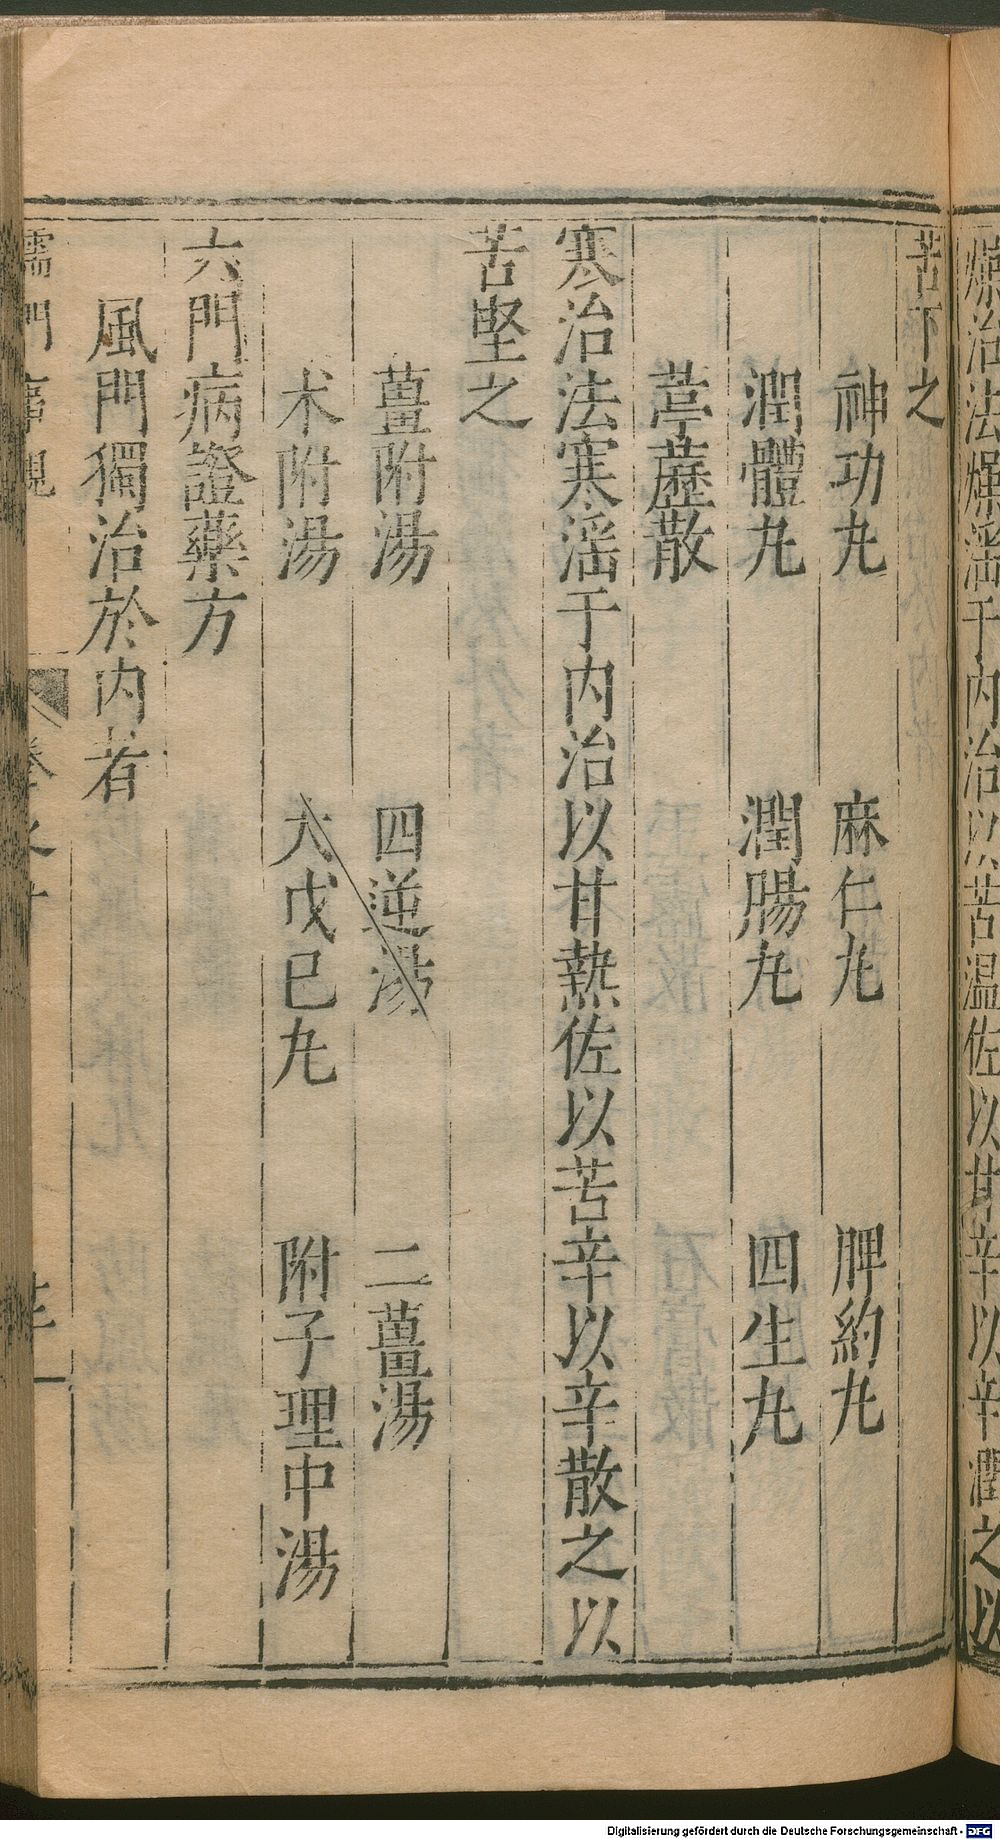 燥治法燥淫于内治以苦温佐以甘辛以辛潤之以
苦下之
神功九 麻仁九 脾約九
潤體九 潤腸九 四生九
葶藶散
寒治法寒淫于内治以甘熱佐以苦辛以辛散之以
苦堅之
薑附湯 四逆湯 二薑湯
术附湯 大戊已九 附子理中湯
六門病證藥方
風門獨治於内者
儒門 親
Digitalisierung gefördert durch die Deutsche Forschungsgemeinschaft - DFG